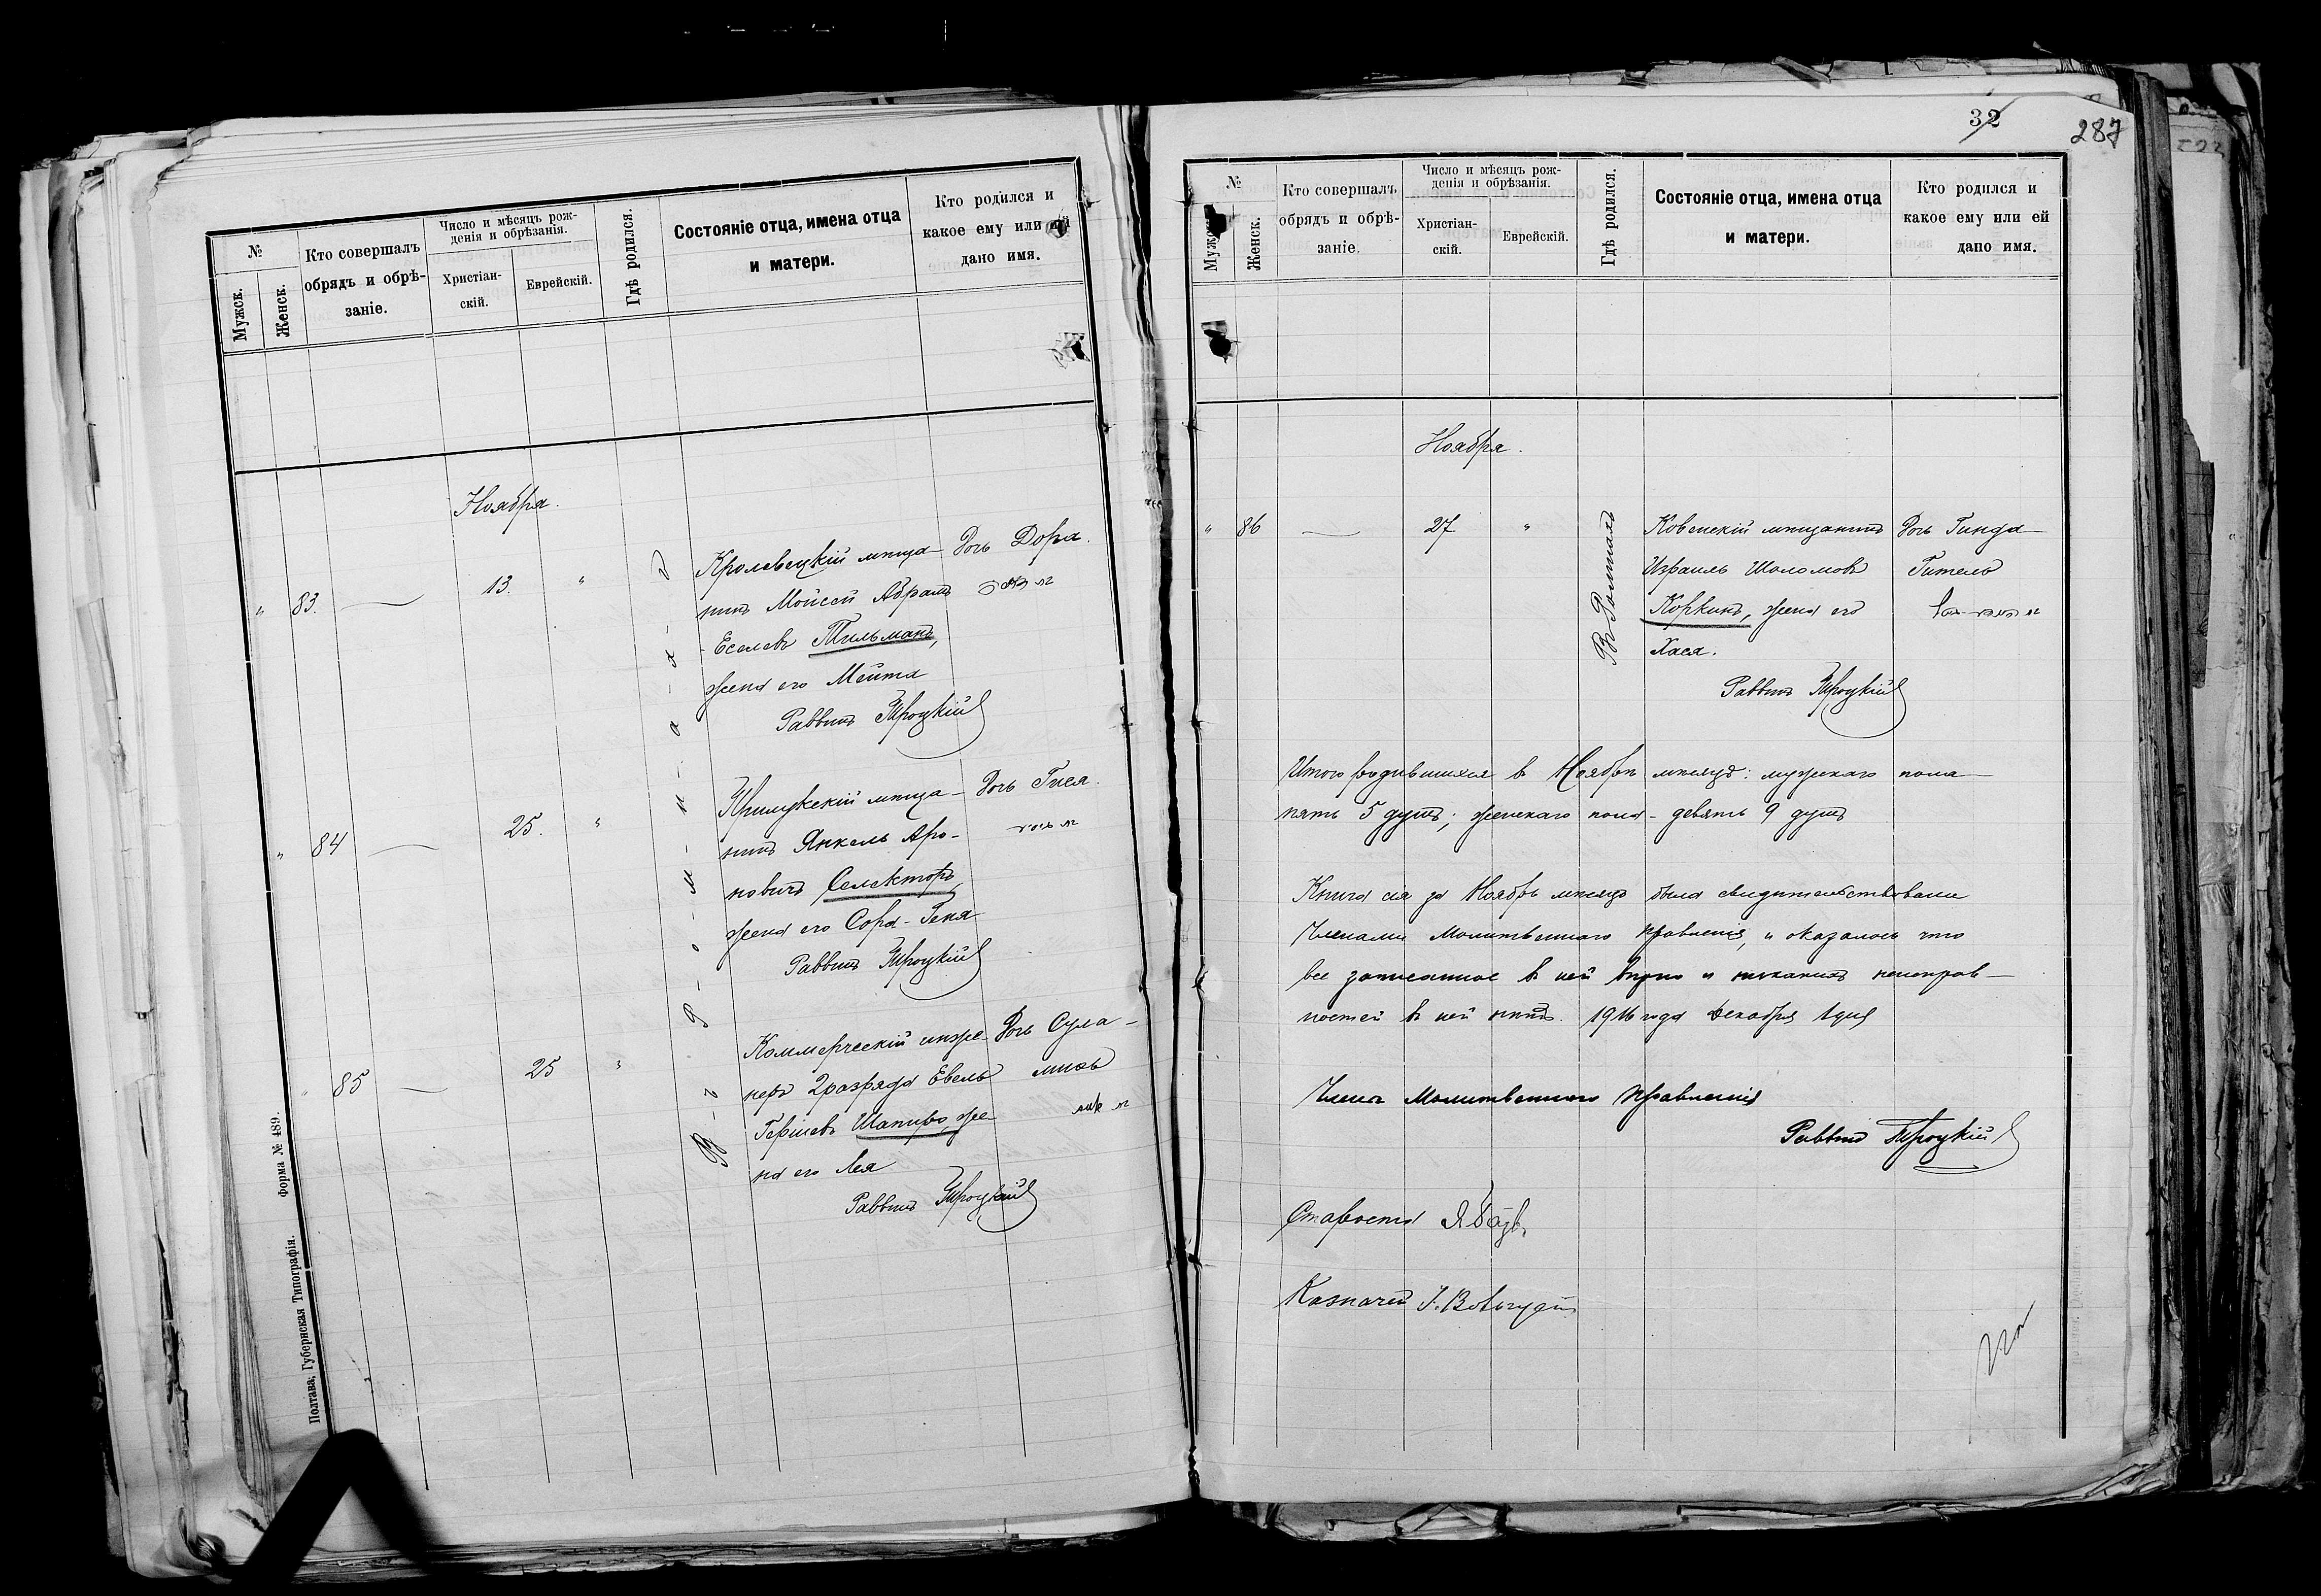 №
Мужск.
Женск.
Кто совершалъ
обрядъ и обрѣ-
заніе.
Число и мѣсяцъ рож-
денія и обрѣзанія.
Христіан-
скій.
Еврейскій.
Гдѣ родился.
Состояніе отца, имена отца
и матери.
Кто родился и
какое ему или ей
дано имя.
Ноября.
" 83. — 13. "
Кролевецкій мѣща-
нинъ Мойсей Абрамъ
- Еселевъ Тильманъ,
жена его Мейта
Дочь Дора.
Раввинъ Троцкій
" 84 — 25. "
Прилукскій мѣща-
нинъ Янкель Аро-
новичъ Селекторъ,
жена его Сора-Геня
Дочь Гися.
Раввинъ Троцкій
" 85 — 25 "
Коммерческій инже-
неръ 2 разряда Евель
Гершевъ Шапиро, же-
на его Лея
Дочь Сула-
миѳь
Раввинъ Троцкій
Въ - Р - о - м - н - а - х - ъ
Форма № 489.
Полтава; Губернская Типографія.
32
287
№
Мужск.
Женск.
Кто совершалъ
обрядъ и обрѣ-
заніе.
Число и мѣсяцъ рож-
денія и обрѣзанія.
Христіан-
скій.
Еврейскій.
Гдѣ родился.
Состояніе отца, имена отца
и матери.
Кто родился и
какое ему или ей
дано имя.
Ноября.
" 86 — 27 "
Въ Ромнахъ
Ковенскій мѣщанинъ
Израиль Шоломовъ
Коркинъ, жена его
Хася.
Дочь Гинда-
Гитель
Раввинъ Троцкій
Итого родившихся въ Ноябрѣ мѣсяцѣ: мужскаго пола —
пять 5 душъ; женскаго пола - девять 9 душъ
Книга сія за Ноябрь мѣсяцъ была свидетельствована
Членами Молитвеннаго Правленія, и оказалось что
все записанное въ ней вѣрно и никакихъ неисправ-
ностей въ ней нѣтъ. 1916 года Декабря 1 дня
Члены Молитвеннаго Правленія
Раввинъ Троцкій
Староста
Казначей